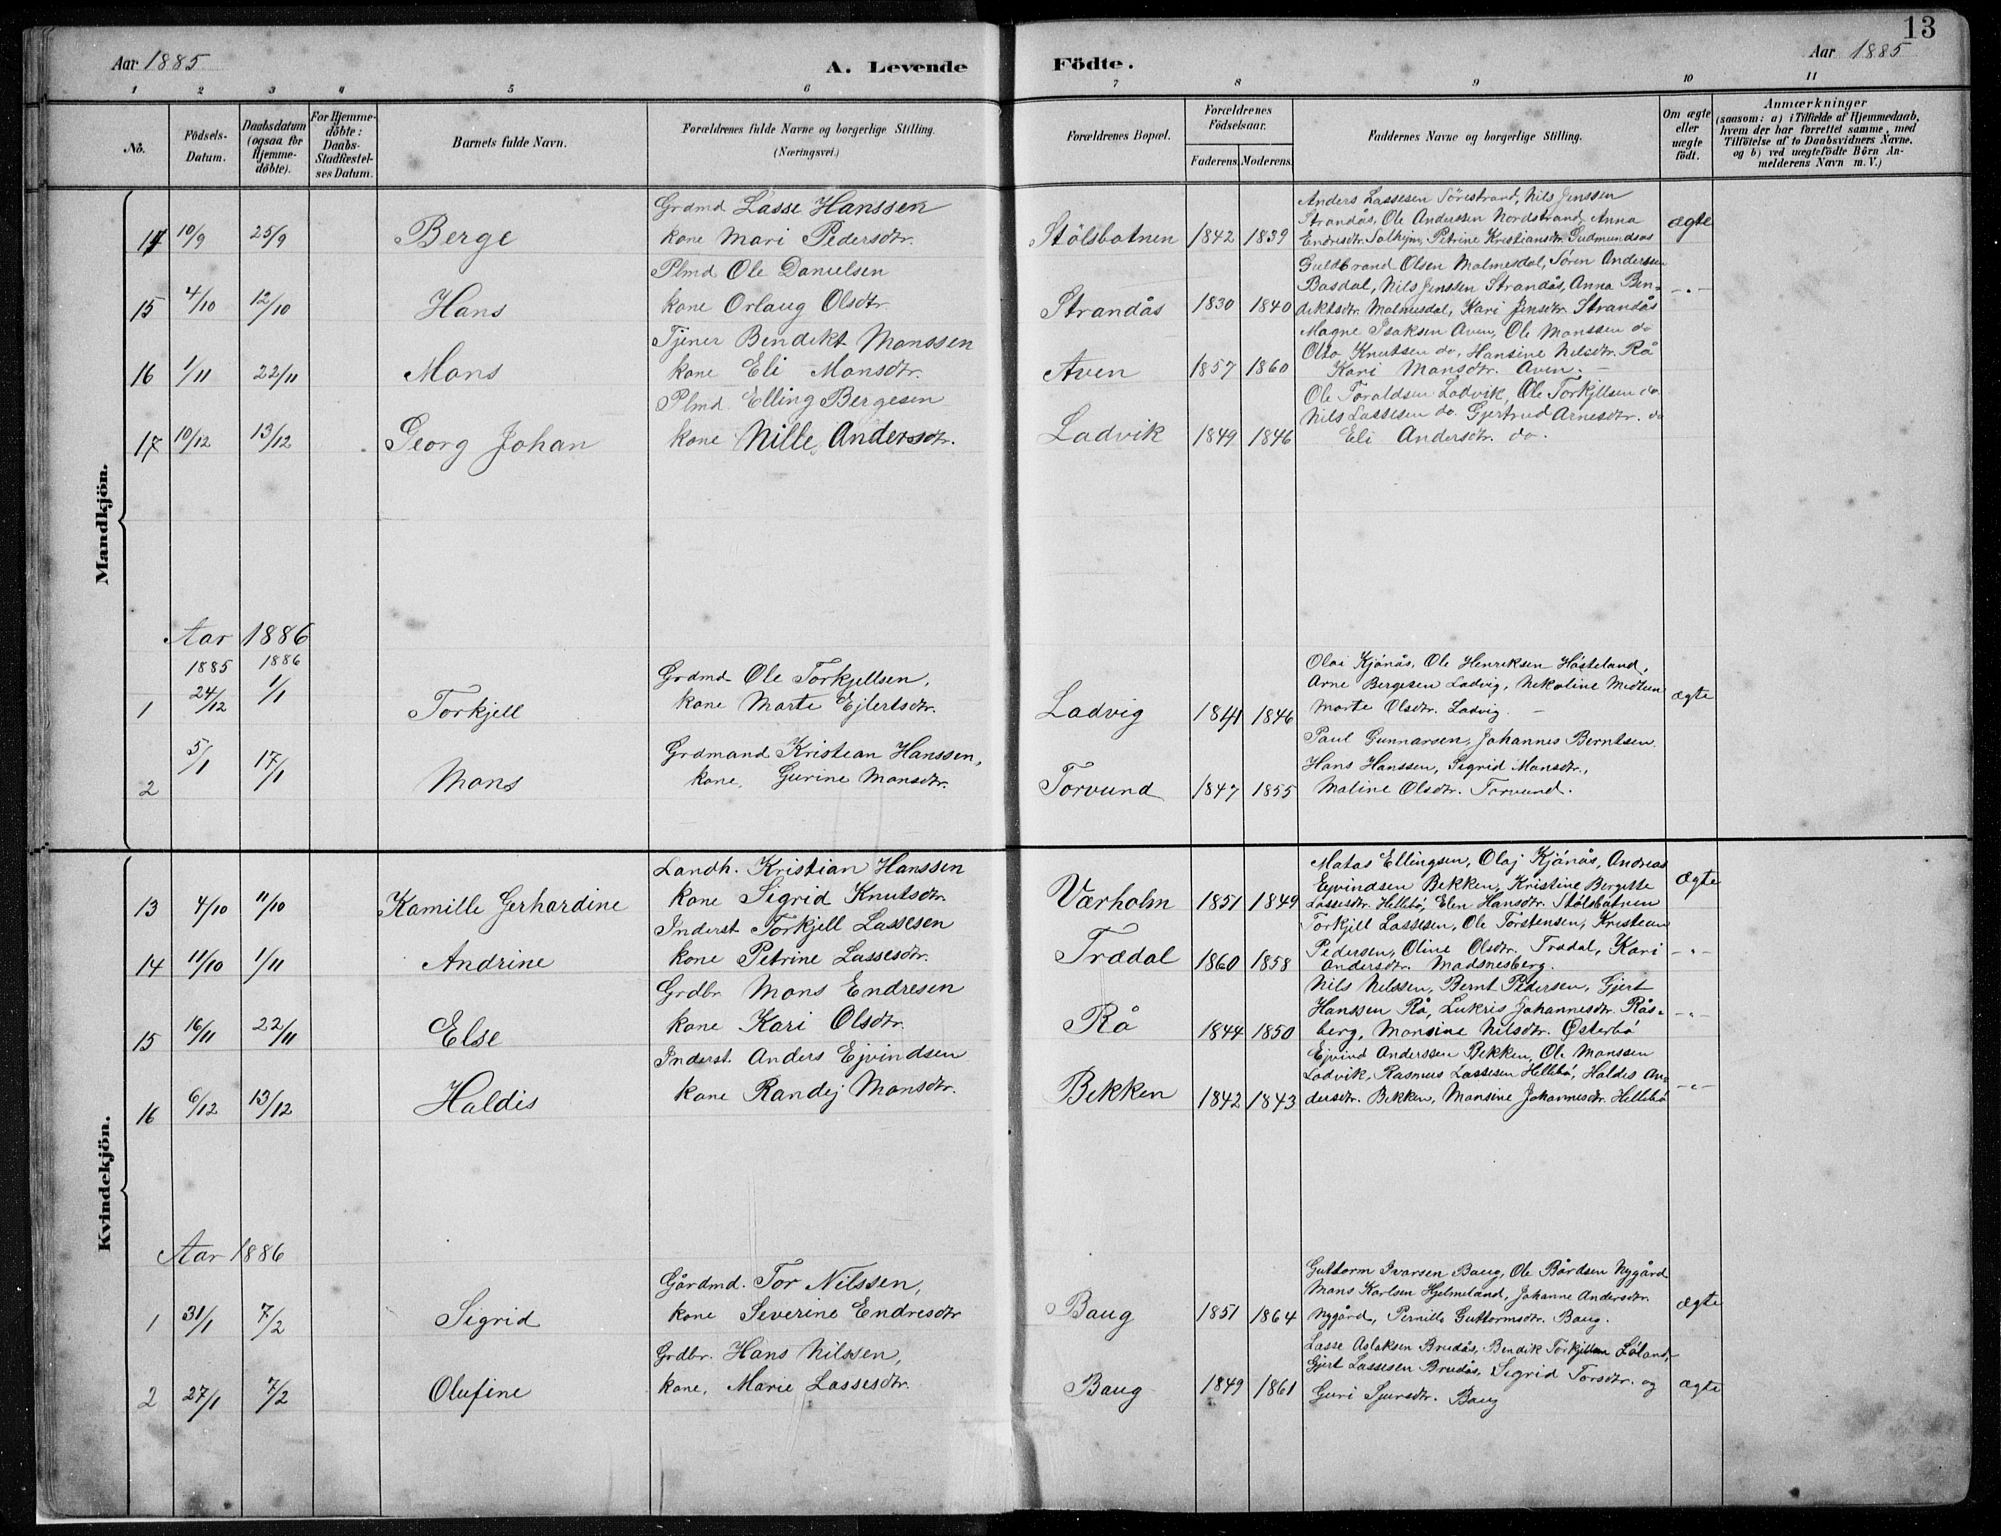 13
Aar 1885
A. Levende
Födte.
Aar 1885
1 2 3 4 5 6 7 8 9 10 11
No.
Födsels-
Datum.
Daabsdatum
(ogsaa for
Hjemme-
döbte).
For Hjemme-
döbte:
Daabs-
Stadfestel-
ses Datum.
Barnets fulde Navn.
Forældrenes fulde Navne og borgerlige Stilling.
(Næringsvei.)
Forældrenes Bopæl.
Forældrenes
Födselsaar.
Faderens. Moderens.
Faddernes Navne og borgerlige Stilling.
Om ægte
eller
uægte
födt.
Anmærkninger
(saasom: a) i Tilfælde af Hjemmedaab,
hvem der har forrettet samme, med
Tilföielse af to Daabsvidners Navne,
og b) ved uægtefödte Börn An-
melderens Navn m. V.)
Mandkjön.
14 10/9 25/9 Berge
Grdmd Lasse Hanssen
kone Mari Pedersdtr.
Stölsbotnen 1842 1839
Anders Lassesen Sörestrand, Nils Jenssen
Strandås, Ole Anderssen Nordstrand, Anna
Endresdtr. Solheim, Petrine Kristiansdtr. Gudmundsås
ægte
15 4/10 12/10 Hans
Plmd Ole Danielsen
kone Orlaug Olsdtr.
Strandås 1830 1840
Guldbrand Olsen Malmesdal, Sören Andersen
Basdal, Nils Jenssen Strandås, Anna Ben-
diktsdtr. Malmesdal, Kari Jensdtr. Strandås
-"-
16 1/11 22/11 Mons
Tjener Bendikt Monssen
kone Eli Monsdtr.
Aven 1857 1860
Magne Isaksen Aven, Ole Monssen do
Otto Knutsen do, Hansine Nilsdtr. Rå
Kari Monsdtr. Aven. -
17 10/12 13/12 Georg Johan
Plmd. Elling Bergesen
kone Nille Andersdtr.
Ladvik 1849 1846
Ole Toraldsen Ladvik, Ole Torkjellsen do
Nils Lassesen do. Gjertrud Arnesdtr. do
Eli Andersdtr. do.
Aar 1886
1885 1886
1 24/12 1/1 Torkjell
Grdmd Ole Torkjellsen,
kone Marte Ejlertsdtr.
Ladvig 1841 1846
Olai Kjönås, Ole Henriksen Hösteland,
Arne Bergesen Ladvig, Nikoline Midtun
Marte Olsdtr. Ladvig -
ægte
2 5/1 17/1 Mons
Grdmand Kristian Hanssen,
kone, Gurine Monsdtr.
Torvund 1847 1855
Paul Gunnarsen, Johannes Berntsen
Hans Hanssen, Sigrid Monsdtr.,
Maline Olsdtr. Torvund.
Kvindekjön.
13 4/10 11/10 Kamille Gerhardine
Landh. Kristian Hanssen
kone Sigrid Knutsdtr
Værholm 1851 1849
Matas Ellingsen, Olaj Kjönås, Andreas
Ejvindsen Bekken, Kristine Bergitte
Lassesdtr. Hellebö, Elen Hansdtr. Stölsbotnen
ægte
14 11/10 1/11 Andrine
Inderst Torkjell Lassesen
kone Petrine Lassesdtr.
Trædal 1860 1858
Torkjell Lassesen, Ole Torstensen, Kristian
Pedersen, Oline Olsdtr. Trædal, Kari
Andersdtr. Madsnesberg.
-"-
15 16/11 22/11 Else
Grdbr Mons Endresen
kone Kari Olsdtr.
Rå 1844 1850
Nils Nilssen, Bernt Pedersen, Gjert
Hanssen Rå, Lukris Johannesdtr. Rås-
berg, Monsine Nilsdtr. Österbö
-"-
16 6/12 13/12 Haldis
Inderst. Anders Ejvindsen
kone Randej Monsdtr.
Bekken 1842 1843
Ejvind Anderssen Bekken, Ole Monssen
Ladvik, Rasmus Lassesen Hellebö, Haldis An-
dersdtr. Bekken, Monsine Johannesdtr. Hellebö
-"-
Aar 1886
1 31/1 7/2 Sigrid
Gårdmd. Tor Nilssen,
kone Severine Endresdtr
Baug 1851 1864
Guttorm Ivarsen Baug, Ole Bårdsen Nygård
Mons Karlsen Hjelmeland, Johanne Andersdtr.
Nygård, Pernille Guttormsdtr. Baug.
ægte
2 27/1 7/2 Olufine
Grdbr. Hans Nilssen,
kone, Marie Lassesdtr.
Baug 1849 1861
Lasse Aslaksen Brudås, Bendik Torkjellsen Löland,
Gjert Lassesen Brudås, Sigrid Torsdtr. og
Guri Sjursdtr. Baug
ægte